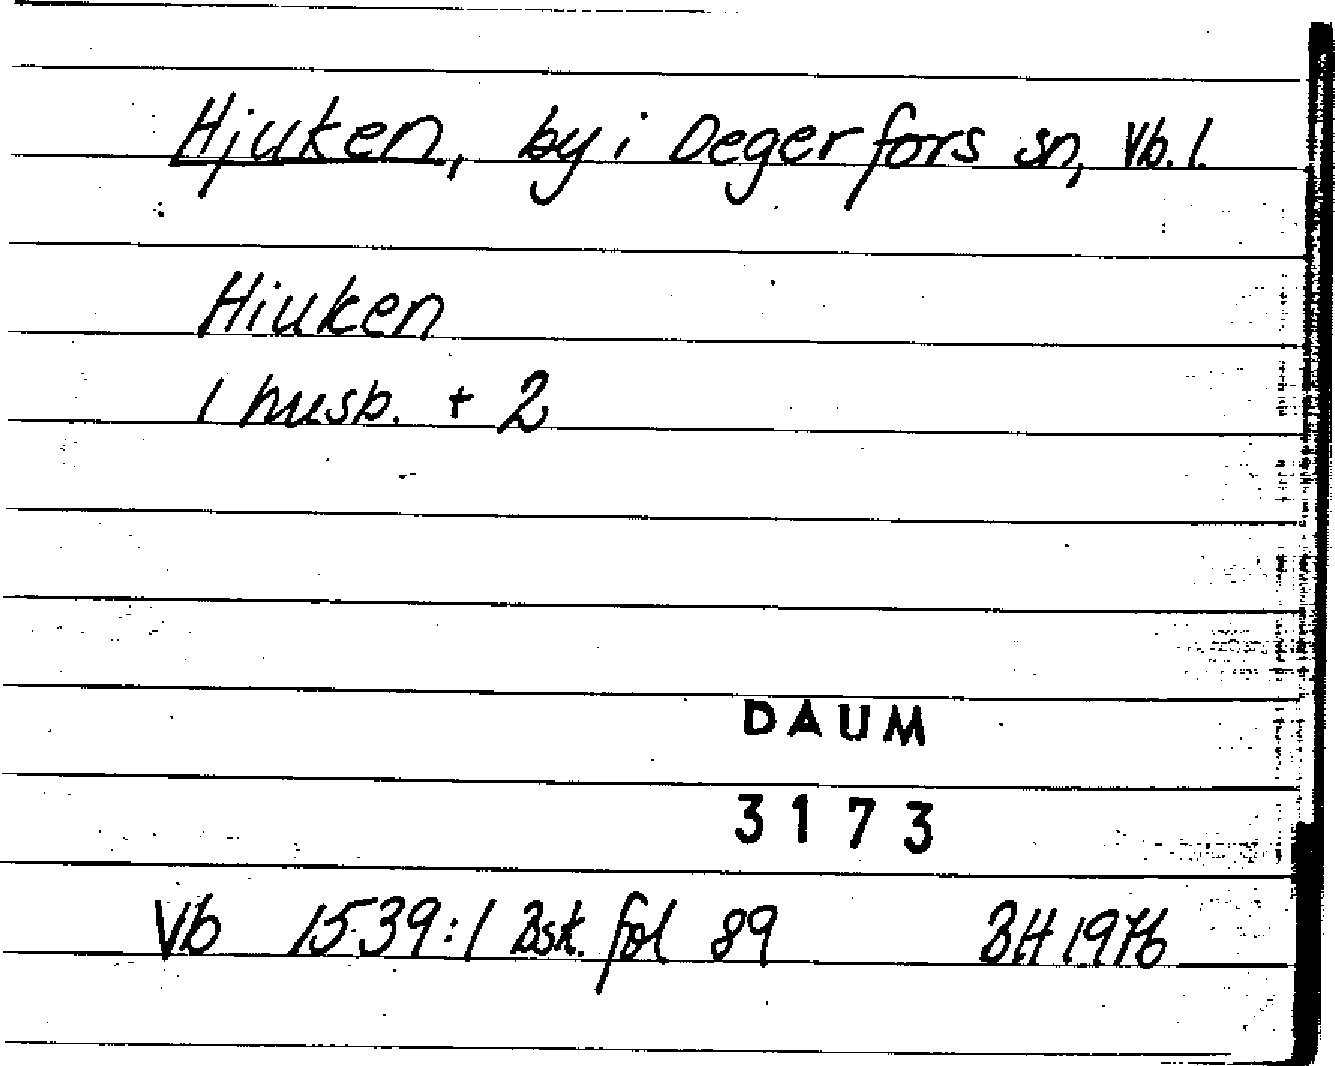 Hjuken, by i Degerfors sn, Vb. l.
Hiuken
1 husb. + 2
DAUM
3173
Vb 1539:1 Bsk. fol 89 BH 1976